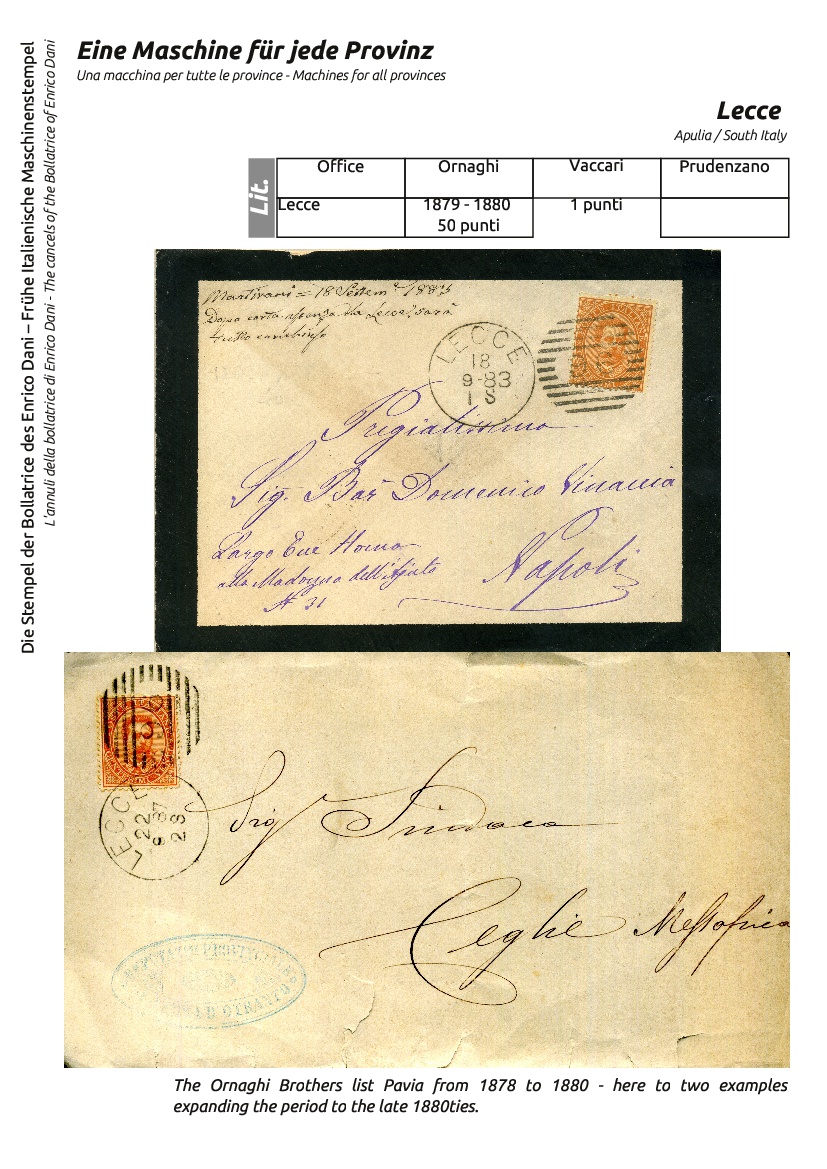 Die Stempel der Bollatrice des Enrico Dani – Frühe Italienische Maschinenstempel
L'annuli della bollatrice di Enrico Dani - The cancels of the Bollatrice of Enrico Dani
Eine Maschine für jede Provinz
Una macchina per tutte le province - Machines for all provinces
Lecce
Apulia / South Italy
Lit.
Office Ornaghi Vaccari Prudenzano
Lecce 1879 - 1880 1 punti
50 punti
18 Settem 1883
Lecce
LECCE
18
9-83
1 S
Pregiatissimo
Sig. Bar Domenico Vinaccia
Largo Ecce Homo
alla Madonna dell'Ajuto
N 31
Napoli
LECCE
22
8 87
2 S
Sig Sindaco
Ceglie Messapica
The Ornaghi Brothers list Pavia from 1878 to 1880 - here to two examples
expanding the period to the late 1880ties.